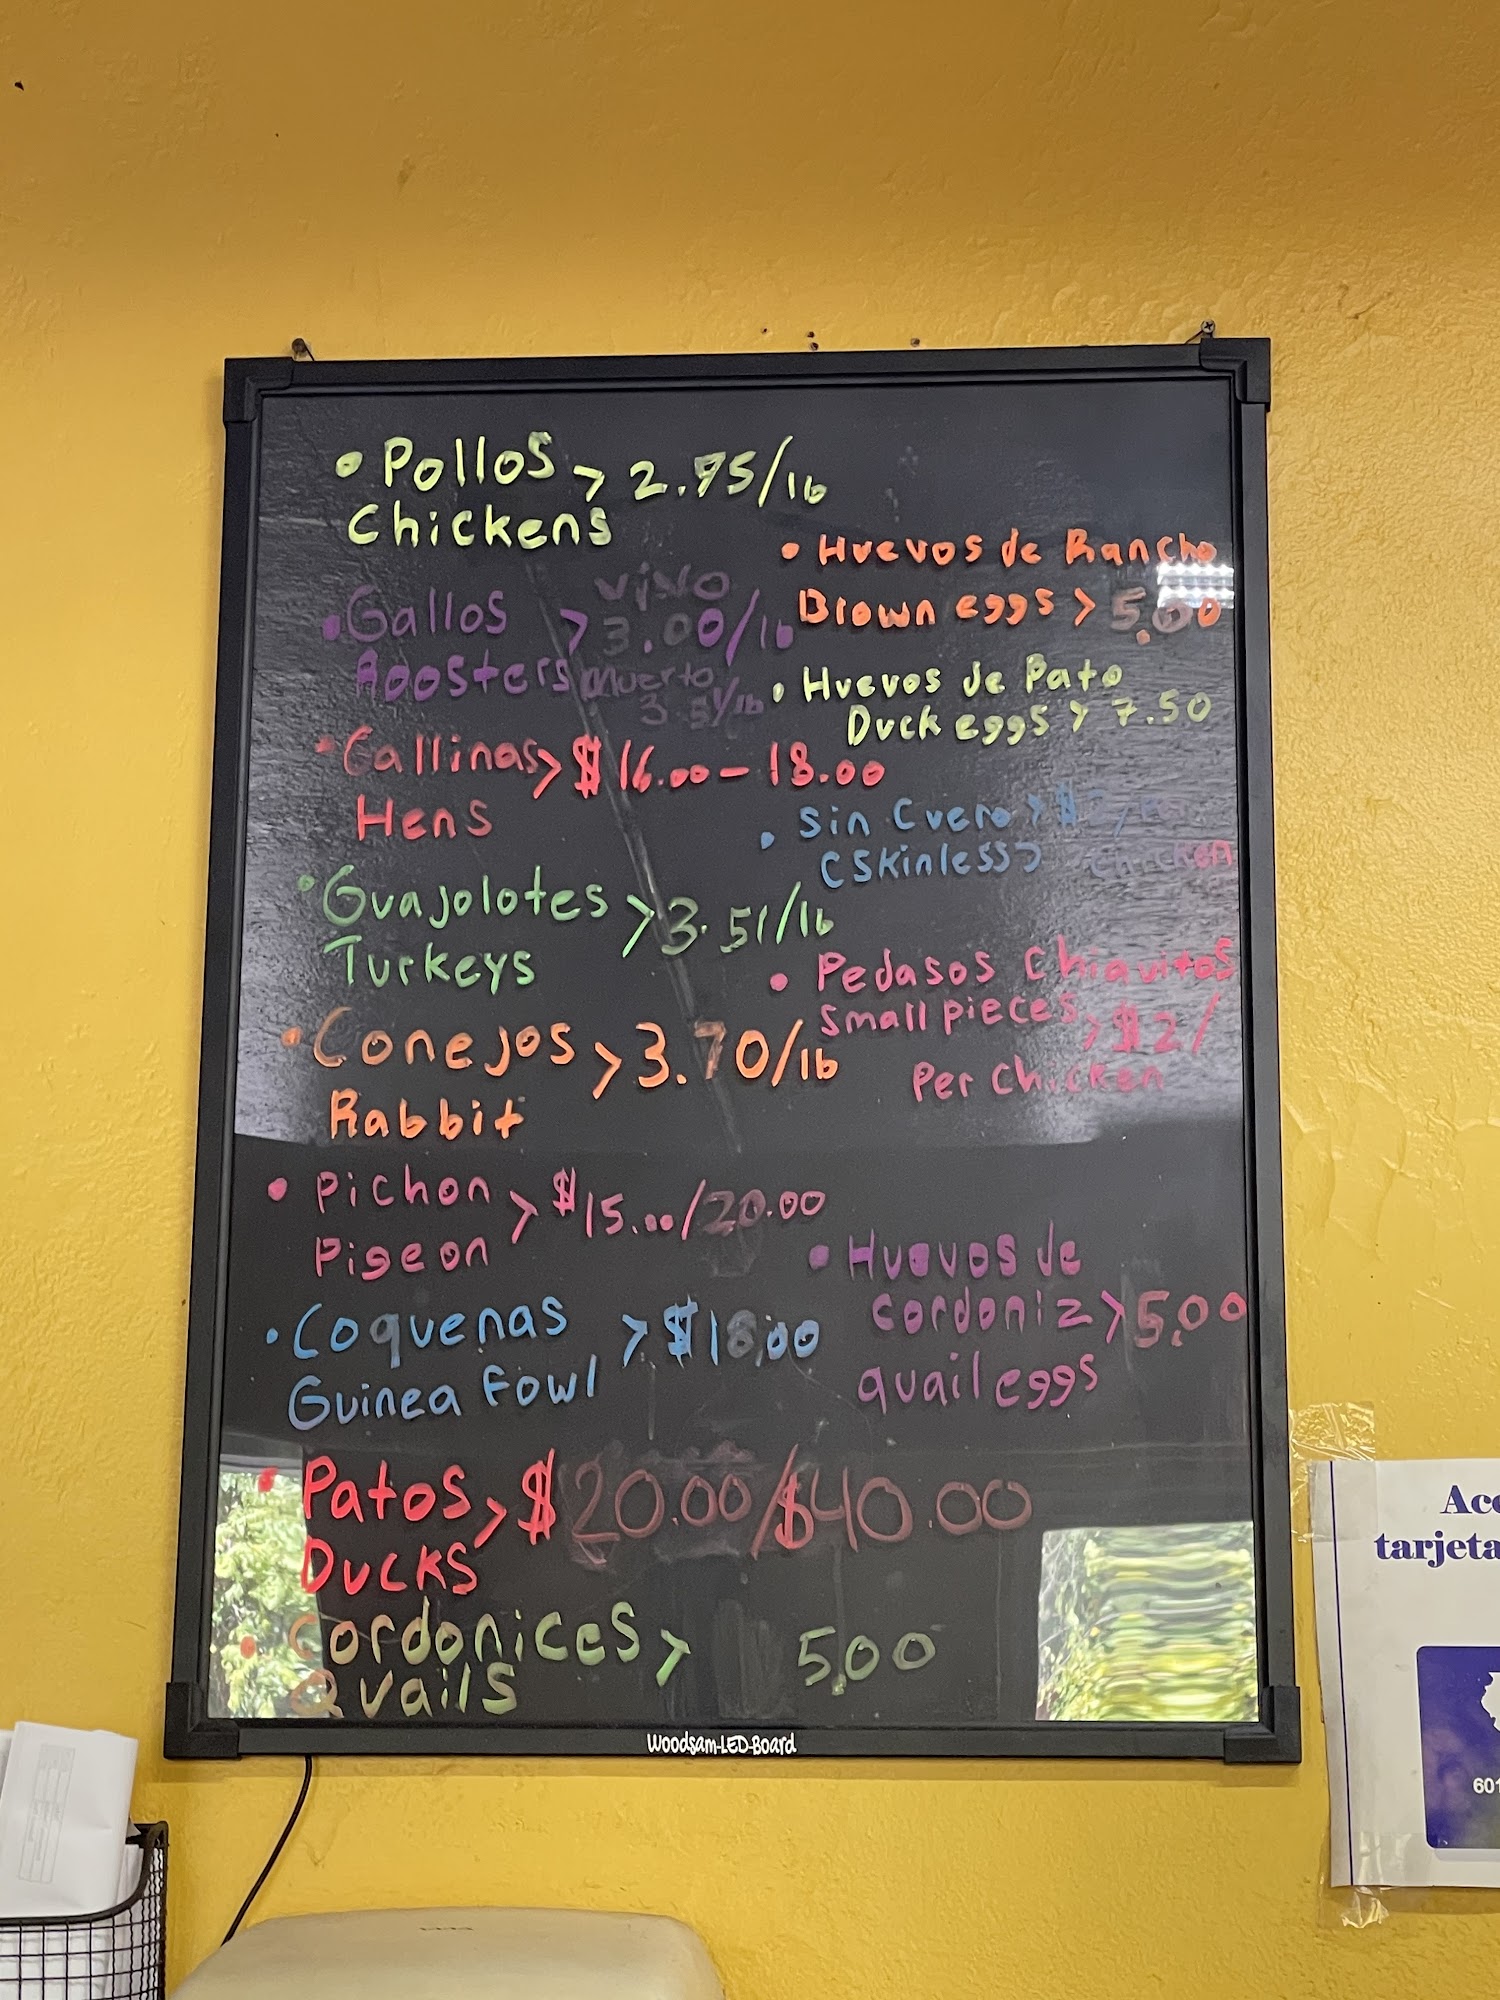 • Pollos > 2.95/lb
Chickens
• Gallos > vivo 3.00/lb
Roosters muerto 3.51/lb
• Gallinas > $16.00 – 18.00
Hens
• Guajolotes > 3.51/lb
Turkeys
• Conejos > 3.70/lb
Rabbit
• Pichon > $15.00/20.00
Pigeon
• Coquenas > $18.00
Guinea Fowl
• Patos > $20.00/$40.00
Ducks
• Cordonices > 5.00
Quails
• Huevos de Rancho
Brown eggs > 5.00
• Huevos de Pato
Duck eggs > 7.50
• Sin Cuero >
(Skinless) Chicken
• Pedasos Chiquitos
Small pieces > $2/
Per Chicken
• Huevos de
cordoniz > 5.00
quail eggs
Woodsam-LED-Board
601